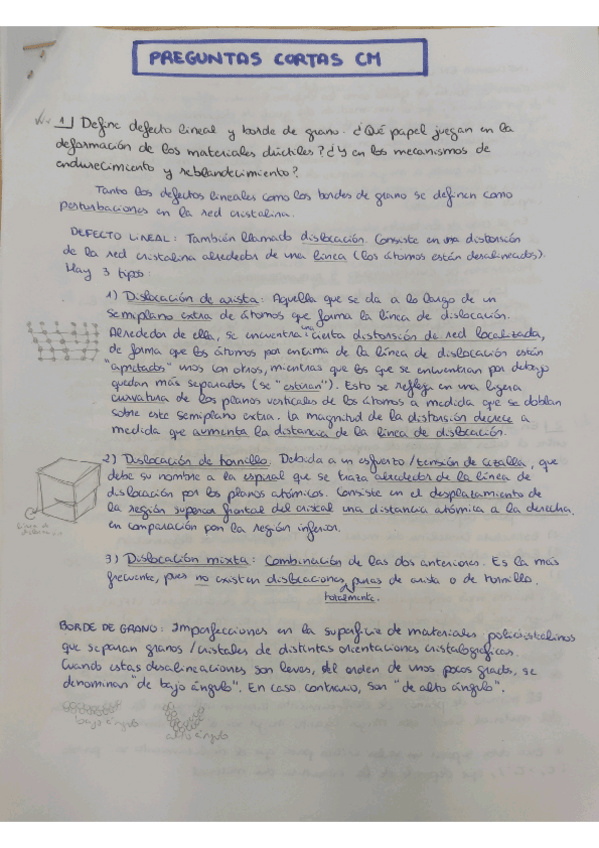 PREGUNTAS CORTAS CM
1) Define defecto lineal y borde de grano. ¿Qué papel juegan en la
deformación de los materiales dúctiles? ¿Y en los mecanismos de
endurecimiento y reblandecimiento?
Tanto los defectos lineales como los bordes de grano se definen como
perturbaciones en la red cristalina.
DEFECTO LINEAL: También llamado dislocación. Consiste en una distorsión
de la red cristalina alrededor de una línea (los átomos están desalineados).
Hay 3 tipos:
1) Dislocación de arista: Aquella que se da a lo largo de un
semiplano extra de átomos que forma la línea de dislocación.
Alrededor de ella, se encuentra una cierta distorsión de red localizada,
de forma que los átomos por encima de la línea de dislocación están
"apretados" unos con otros, mientras que los que se encuentran por debajo
quedan más separados (se "estiran"). Esto se refleja en una ligera
curvatura de los planos verticales de los átomos a medida que se doblan
sobre este semiplano extra. La magnitud de la distorsión decrece a
medida que aumenta la distancia de la línea de dislocación.
2) Dislocación de tornillo. Debida a un esfuerzo/tensión de cizalla, que
debe su nombre a la espiral que se traza alrededor de la línea de
dislocación por los planos atómicos. Consiste en el desplazamiento de
la región superior frontal del cristal una distancia atómica a la derecha,
en comparación con la región inferior.
línea de
3) Dislocación mixta: Combinación de las dos anteriores. Es la más
frecuente, pues no existen dislocaciones puras de arista o de tornillo.
totalmente.
BORDE DE GRANO: Imperfecciones en la superficie de materiales policristalinos
que separan granos/cristales de distintas orientaciones cristalográficas.
Cuando estas desalineaciones son leves, del orden de unos pocos grados, se
denominan "de bajo ángulo". En caso contrario, son "de alto ángulo".
bajo ángulo
alto ángulo